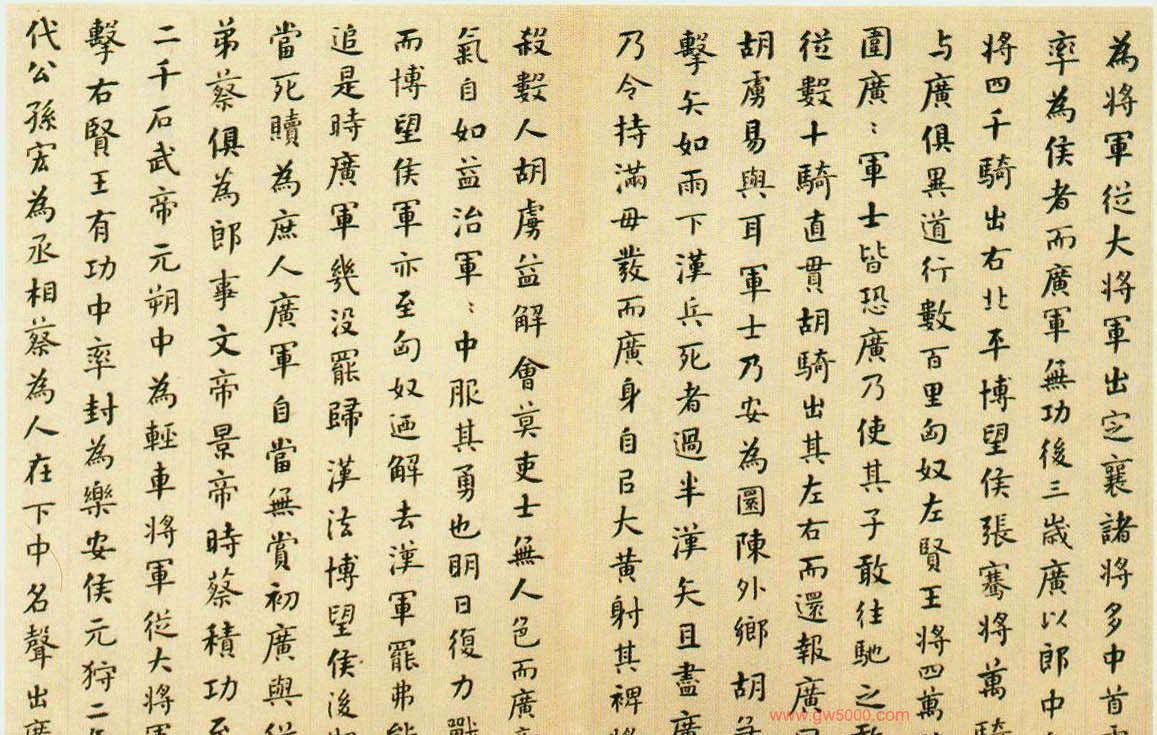 為將軍從大將軍出定襄諸將多中首
率為侯者而廣軍無功後三歲廣以郎中
將四千騎出右北平博望侯張騫將萬騎
与廣俱異道行數百里匈奴左賢王將四萬
圍廣〻軍士皆恐廣乃使其子敢往馳之
從數十騎直貫胡騎出其左右而還報廣
胡虜易與耳軍士乃安為圜陳外鄉胡急
擊矢如雨下漢兵死者過半漢矢且盡廣
乃令持滿毋發而廣身自㠯大黃射其裨將
殺數人胡虜益解會莫吏士無人色而廣
氣自如益治軍〻中服其勇也明日復力戰
而博望侯軍亦至匈奴迺解去漢軍罷弗能
追是時廣軍幾没罷歸漢法博望侯後期
當死贖為庶人廣軍自當無賞初廣與從
弟蔡俱為郎事文帝景帝時蔡積功至
二千石武帝元朔中為輕車將軍從大將軍
擊右賢王有功中率封為樂安侯元狩二年
代公孫宏為丞相蔡為人在下中名聲出廣
www.gw5000.com